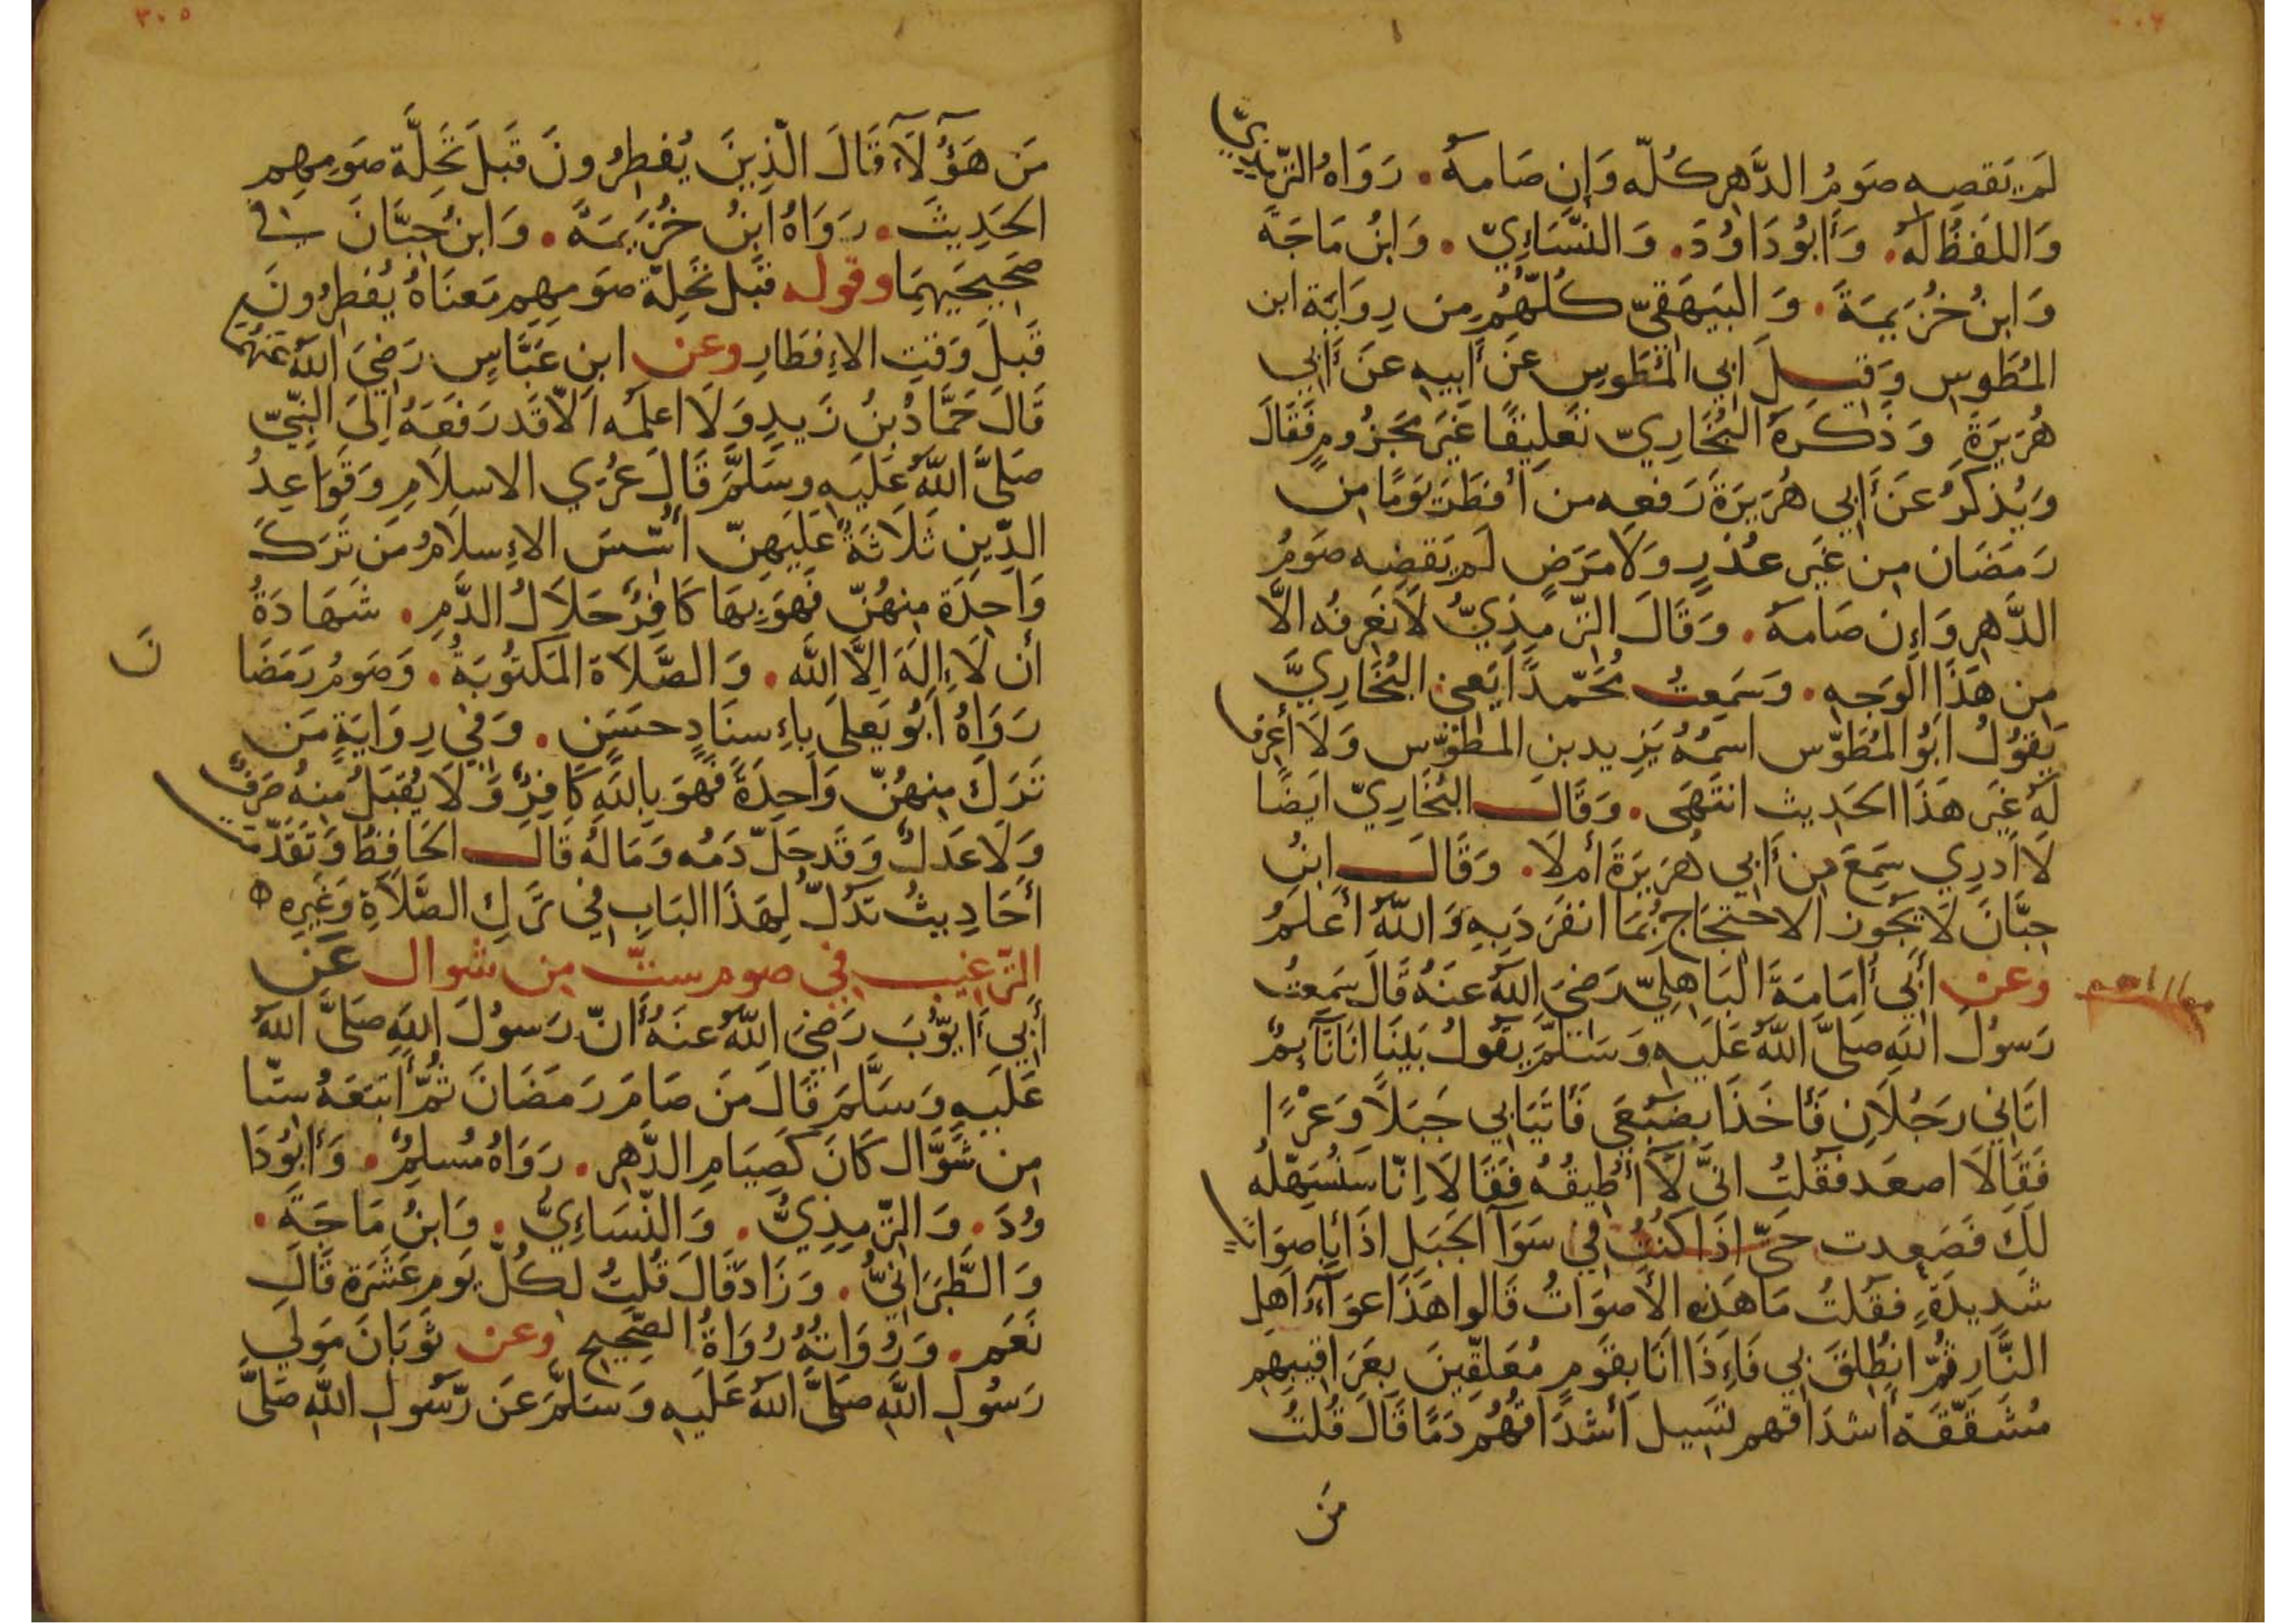 لَم يَقضِه صَومُ الدَّهرِ كُلّه وَإِن صَامَهُ . رَوَاهُ التِّرمِذِيّ
وَاللفظُ لَهُ . وَأَبُو دَاوُدَ . وَالنَّسَاءِيّ . وَابنُ مَاجَةَ
وَابنُ خُزَيمَةَ . وَالبَيهَقِيّ كُلّهُم مِن رِوَايَة ابن
المُطَوس وَقيلَ ابي المُطَوس عَن أَبِيه عَن أَبي
هُرَيرَةَ وَذَكَرَهُ البُخَارِيّ تَعلِيقًا غَيرَ مَجزُومٍ فَقَالَ
وَيُذكَرُ عَن أَبي هُرَيرَةَ رَفعه من أَفطَرَ يَومًا مِن
رَمَضَان مِن غَيرِ عُذرٍ وَلَا مَرَضٍ لَم يَقضِه صَومُ
الدَّهرِ وَإِن صَامَهُ . وَقَالَ التِّرمِذِيُّ لَا نَعرِفُه الَّا
مِن هَذَا الوَجهِ . وَسَمِعتُ مُحَمّدًا يَعني البُخَارِيَّ
يَقُولُ ابُو المُطَوّس اسمُهُ يَزِيد بن المطَوّس وَلَا أَعرِف
لَهُ غَيرَ هَذَا الحَدِيث انتَهَى . وَقَالَ البُخَارِيّ ايَضًا
لَا أَدرِي سَمِعَ مِن أَبي هُرَيرَةَ أَم لَا . وَقَالَ ابنُ
حِبَّانَ لَا يَجُوز الاحتِجَاج بِمَا انفَرَدَ بِهِ وَاللهُ أَعلَمُ
وعن أَبي أُمَامَةَ البَاهِلِيّ رَضيَ اللهُ عَنهُ قَالَ سَمِعتُ
رَسُولَ اللهِ صَلَّى اللهُ عَلَيهِ وَسَلَّمَ يَقُولُ بَينَا انَا نَآئِمُ
اتَاني رَجُلَانِ فَأَخَذَا بِضَبعَي فَأتَيَا بي جَبَلًا وَعرًا
فَقَالَا اصعَد فَقُلتُ انّي لَا أُطِيقُهُ فَقَالَا إِنّا سَنُسَهّلُه
لَكَ فَصَعِدت حَتّى اذَا كُنتُ في سَوَآ الجَبَلِ اذَا بِأَصوَاتٍ
شَدِيدَةٍ فَقُلتُ مَا هَذِهِ الأَصوَاتُ قَالوا هَذَا عوَآءُ اهلِ
النَّارِ ثُمّ انطُلِقَ بي فَإِذَا انَا بِقَومٍ مُعَلّقِينَ بِعَرَاقِيبِهِم
مُشَقّقَة أَشدَاقهم تَسِيل أَشدَاقُهُم دَمًا قَالَ قُلتُ
مَن
٣٠٥
مَن هَؤُلَآءِ قَالَ الّذِينَ يُفطِرُونَ قَبلَ تَحِلَّة صَومِهِم
الحَدِيثَ . رَوَاهُ ابنُ خُزَيمَةَ . وَابنُ حِبَّانَ في
صَحِيحَيهِمَا وقوله قَبلَ تَحِلّة صَومِهِم مَعنَاهُ يُفطِرُونَ
قَبلَ وَقتِ الإِفطَارِ وعن ابن عَبَّاسٍ رَضيَ اللهُ عَنهُمَا
قَالَ حَمَّادُ بنُ زَيدٍ وَلَا اعلَمُه الّا قَد رَفَعَهُ إِلى النَّبيّ
صَلَّى اللهُ عَلَيهِ وسَلَّمَ قَالَ عُرَي الاسلَامِ وَقَوَاعِدُ
الدِّينِ ثَلَاثَةُ عَلَيهِنّ أُسّسَ الإِسلَامُ مَن تَرَكَ
وَاحِدَة مِنهُنّ فَهوَ بِهَا كَافِرُ حَلَالُ الدَّمِ . شَهَادَةُ
أَن لَا إِلَهَ الَّا الله . وَالصَّلَاة المَكتُوبَةُ . وَصَومُ رَمَضَا
نَ
رَوَاهُ أَبُو يَعلى بِإِسنَادٍ حسَنٍ . وَفي رِوَايَةٍ مَن
تَرَكَ مِنهُنّ وَاحِدَةً فَهوَ بِاللهِ كَافِرُ وَلَا يُقبَلُ مِنهُ صَرفُ
وَلَا عَدلُ وَقَد حَلّ دَمُه وَمَالُهُ قَالَ الحَافِظُ وَتَقَدّمَت
أَحَادِيثُ تَدُلّ لِهَذَا البَابِ في تَركِ الصَّلَاةِ وَغَيرِهِ
الترغيب في صوم ستّ مِن شوال عَن
أَبي أَيّوُبَ رَضيَ اللهُ عَنهُ أَنّ رَسُولَ اللهِ صَلَّى اللهُ
عَلَيهِ وَسَلَّمَ قَالَ مَن صَامَ رَمَضَانَ ثُمّ أَتبَعَهُ ستّا
مِن شَوَّال كَانَ كَصِيَامِ الدَّهرِ . رَوَاهُ مُسلِمُ . وَأَبُو دَا
وُدَ . وَالتِّرمِذِيُّ . وَالنّسَاءِيُّ . وَابنُ مَاجَةَ .
وَالطَّبَرَانيُّ . وَزَادَ قَالَ قُلتُ لِكُلّ يَوم عَشَرَة قَالَ
نَعَم . وَرُوَاتُهُ رُوَاةُ الصَّحِيح وعن ثَوبَانَ مَولَي
رَسُولِ اللهِ صَلَّى اللهُ عَلَيهِ وَسَلَّمَ عَن رَّسُولِ اللهِ صَلَّى